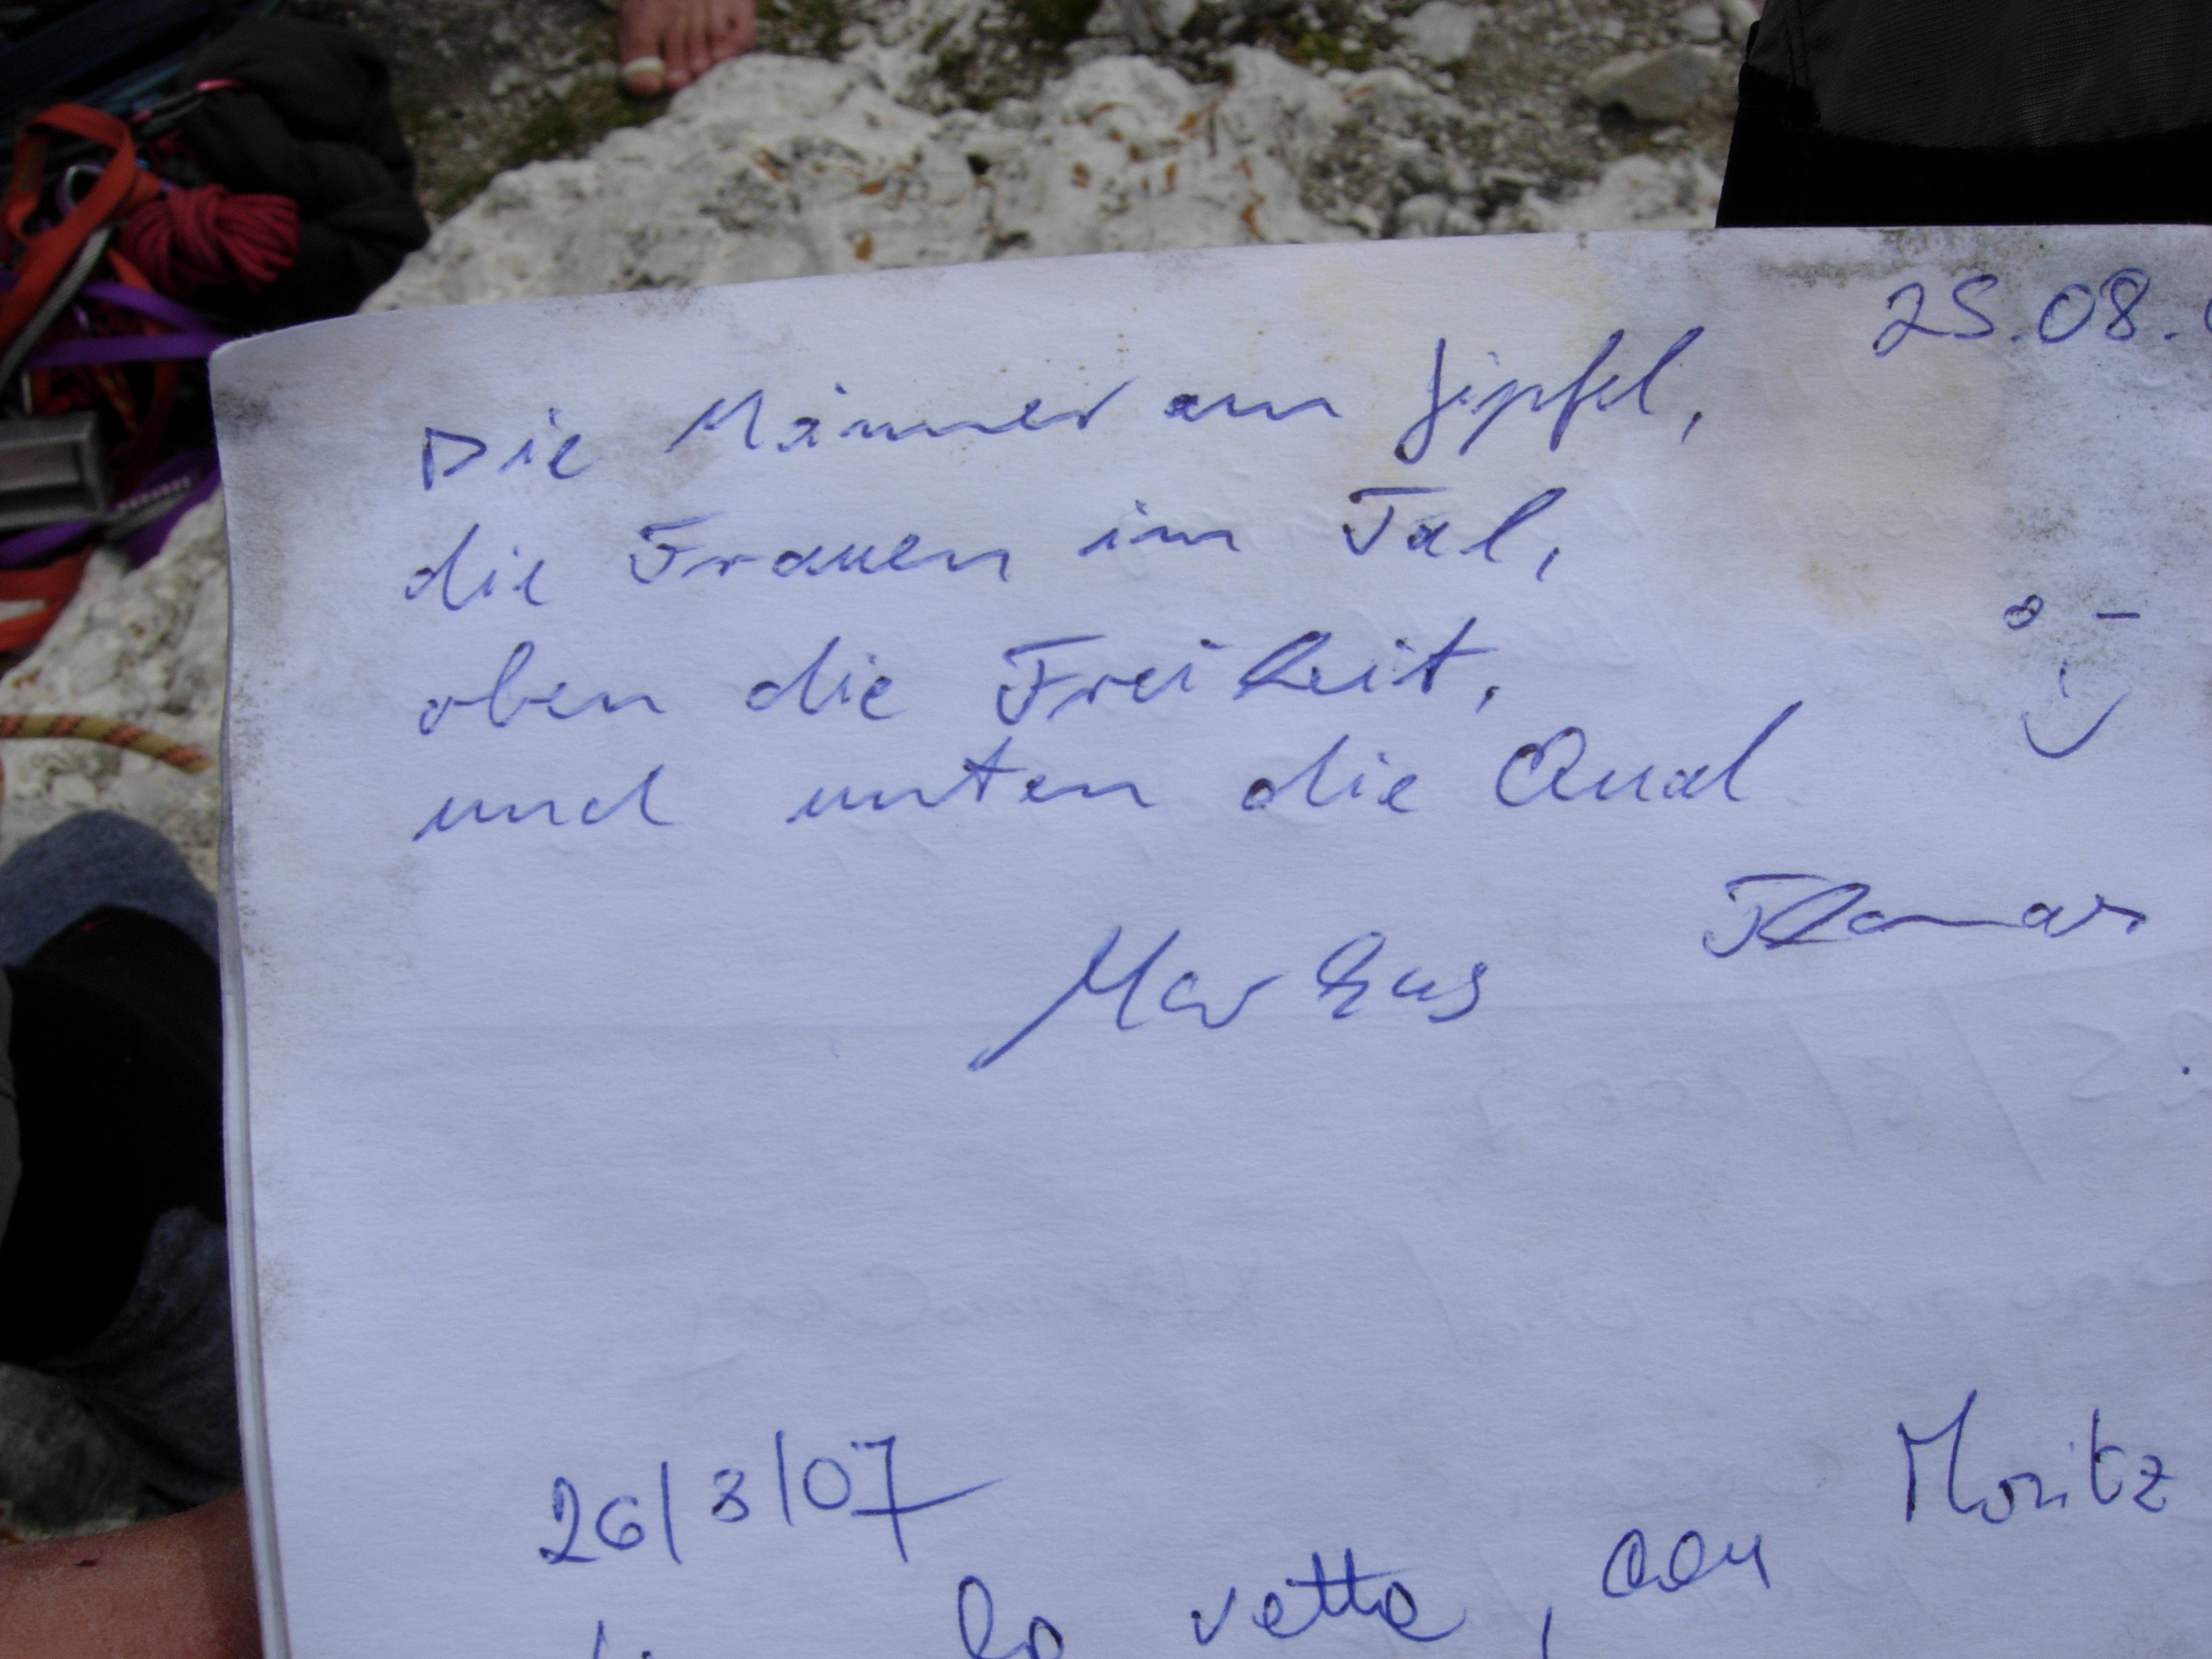 25.08.
Die Männer am Gipfel,
die Frauen im Tal,
oben die Freiheit,
und unten die Qual
Thomas
Markus
26/8/07
Moritz
la vetta, con